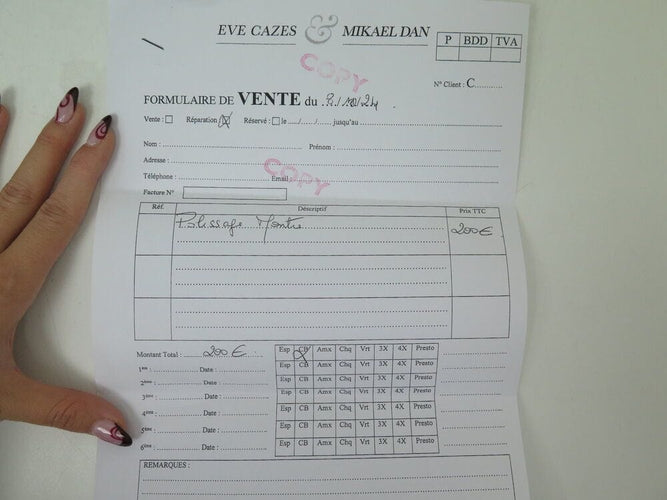 EVE CAZES & MIKAEL DAN
P BDD TVA
COPY
N° Client : C............
FORMULAIRE DE VENTE du
Vente : Réparation : Réservé : le ....../....../...... jusqu'au
Nom : Prénom :
COPY
Adresse :
Téléphone : Email :
Facture N°
Réf. Descriptif Prix TTC
Polissage Montre 200€
Montant Total : 200 €. Esp CB Amx Chq Vrt 3X 4X Presto
1ère Date : Esp CB Amx Chq Vrt 3X 4X Presto
2ème Date : Esp CB Amx Chq Vrt 3X 4X Presto
3ème Date : Esp CB Amx Chq Vrt 3X 4X Presto
4ème Date : Esp CB Amx Chq Vrt 3X 4X Presto
5ème Date : Esp CB Amx Chq Vrt 3X 4X Presto
6ème Date : Esp CB Amx Chq Vrt 3X 4X Presto
REMARQUES :